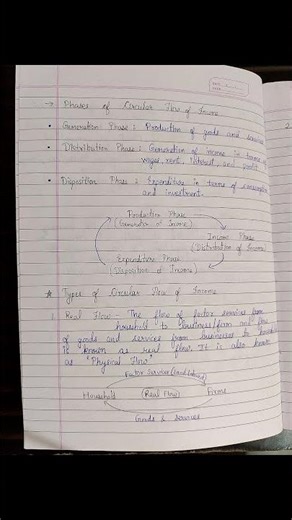 → Phases of Circular Flow of Income
• Generation Phase : Production of goods and services
• Distribution Phase : Generation of income in terms of
wages, rent, interest, and profit
• Disposition Phase : Expenditure in terms of consumption
and investment.
Production Phase
(Generation of Income)
Income Phase
(Distribution of Income)
Expenditure Phase
(Disposition of Income)
* Types of Circular Flow of Income
1. Real Flow - The flow of factor services from
household to business/firm and flow
of goods and services from businesses to
is known as real flow. It is also known
as "Physical Flow"
Factor Services (Land, Labour)
Household
Real Flow
Firms
Goods & Services
2